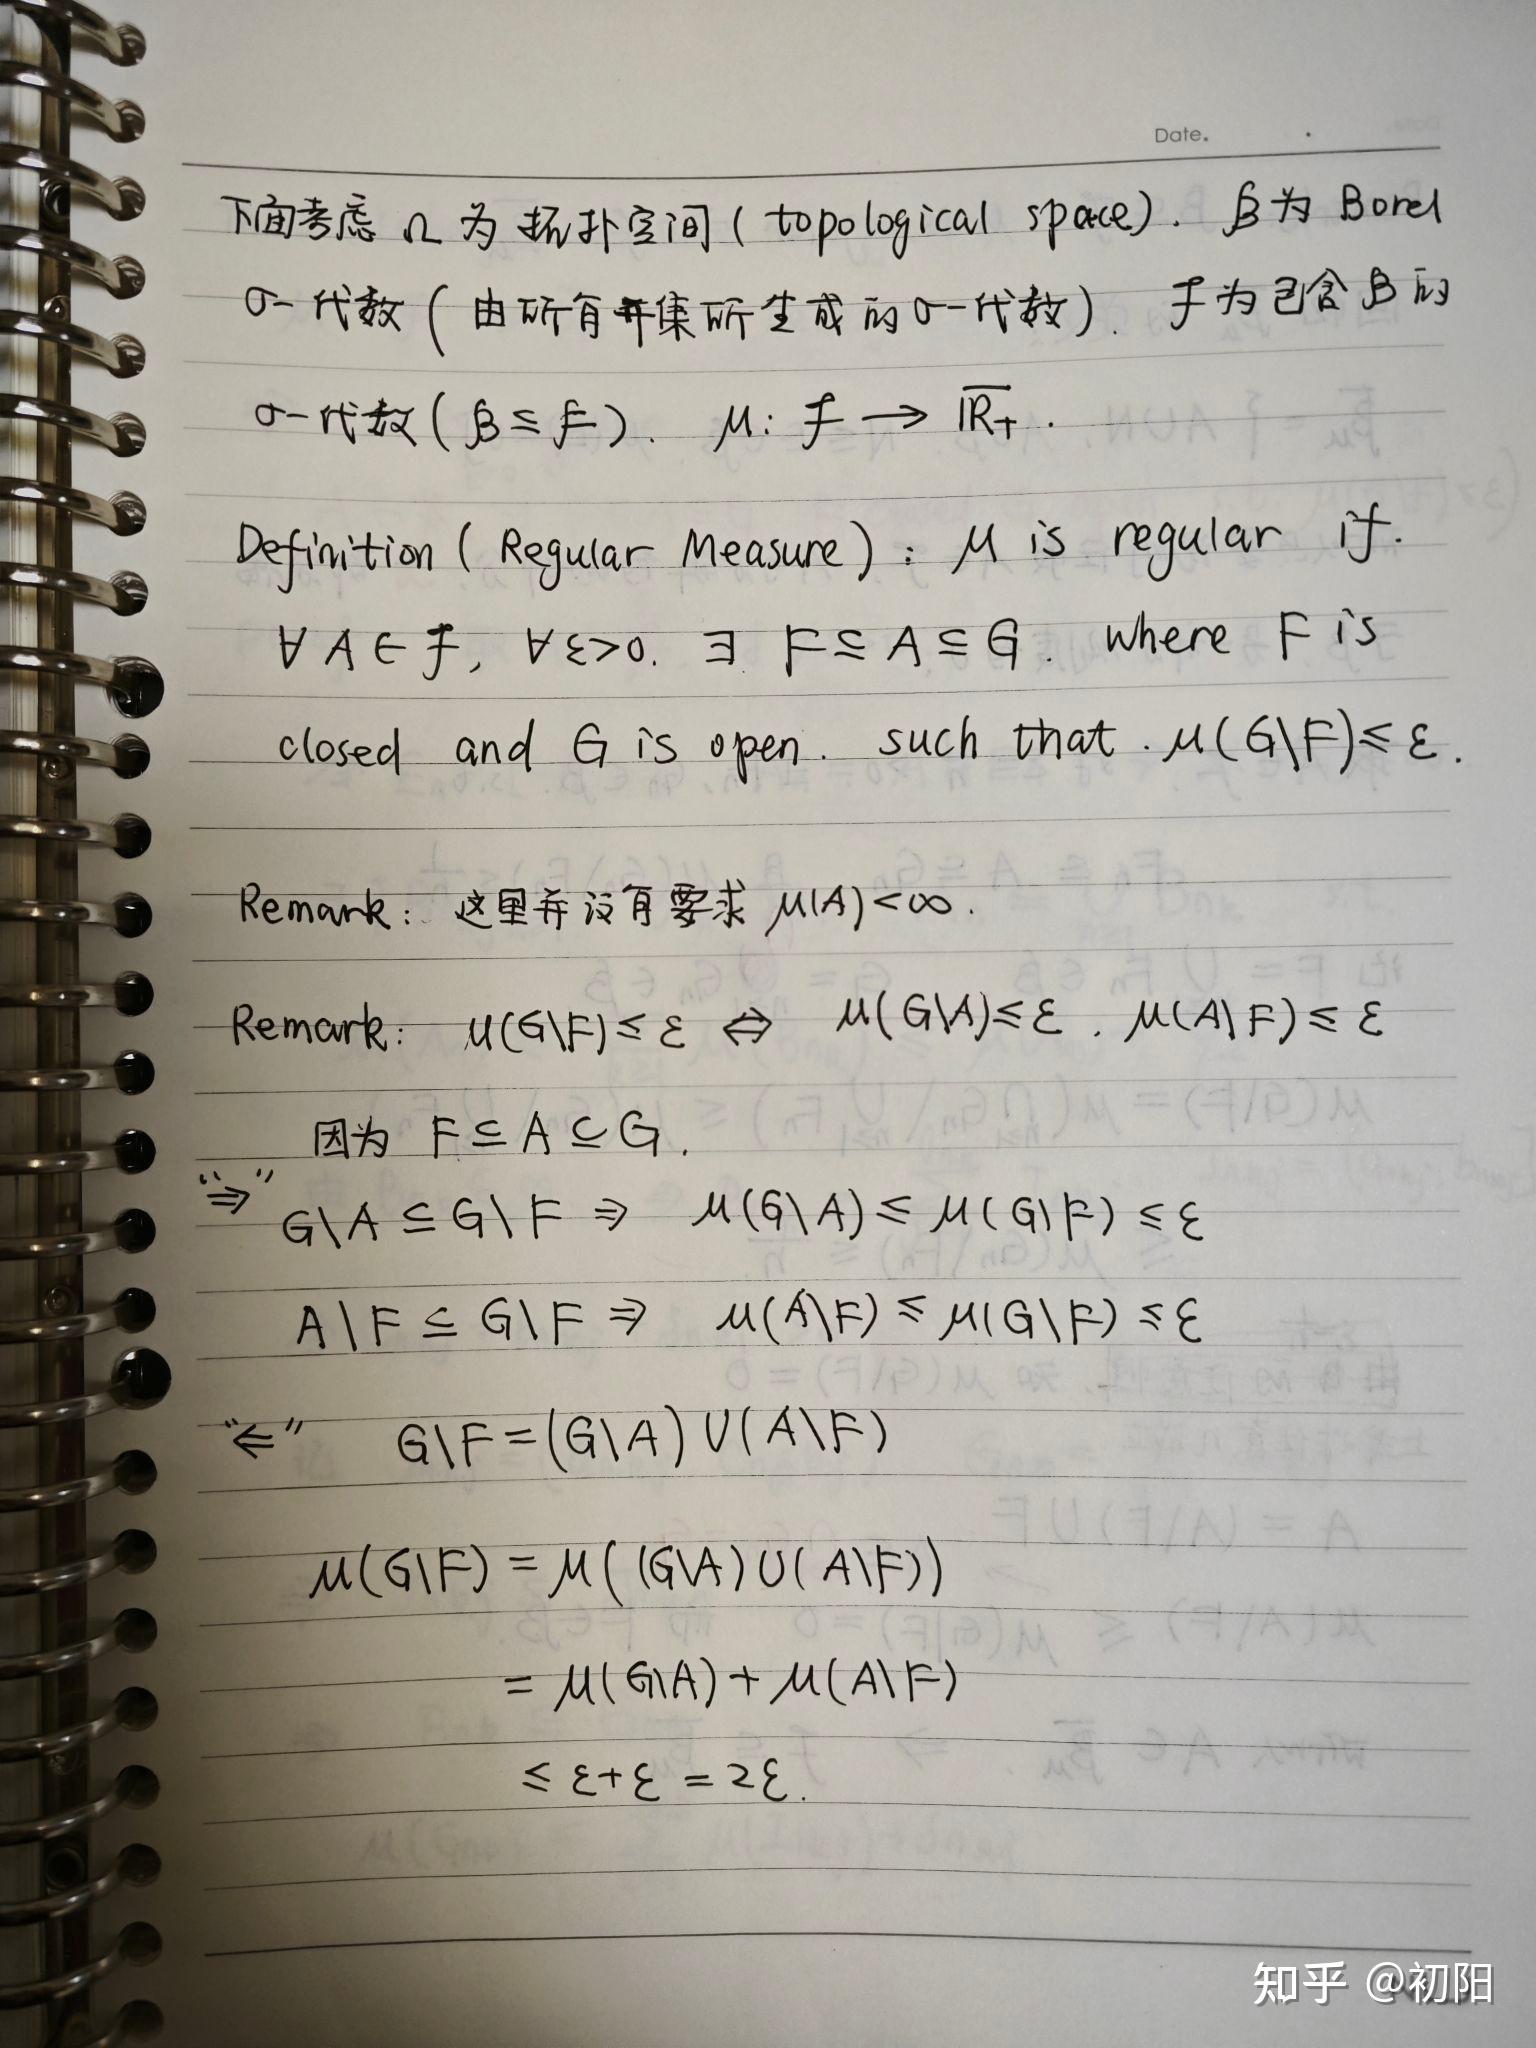 Date.
下面考虑 Ω 为拓扑空间 ( topological space ) . β 为 Borel
σ-代数 ( 由所有开集所生成的σ-代数 ) . F 为包含 β 的
σ-代数 ( β ⊆ F ) . μ : F → \overline{ℝ}₊ .
Definition ( Regular Measure ) : μ is regular if.
∀ A ∈ F, ∀ ε>0. ∃ F ⊆ A ⊆ G . where F is
closed and G is open. such that . μ(G\F) ≤ ε .
Remark : 这里并没有要求 μ(A) < ∞ .
Remark : μ(G\F) ≤ ε ⇔ μ(G\A) ≤ ε . μ(A\F) ≤ ε
因为 F ⊆ A ⊆ G .
“⇒”
G\A ⊆ G\F ⇒ μ(G\A) ≤ μ(G\F) ≤ ε
A\F ⊆ G\F ⇒ μ(A\F) ≤ μ(G\F) ≤ ε
“⇐” G\F = (G\A) ∪ (A\F)
μ(G\F) = μ( (G\A) ∪ (A\F) )
= μ(G\A) + μ(A\F)
≤ ε+ε = 2ε .
知乎 @初阳